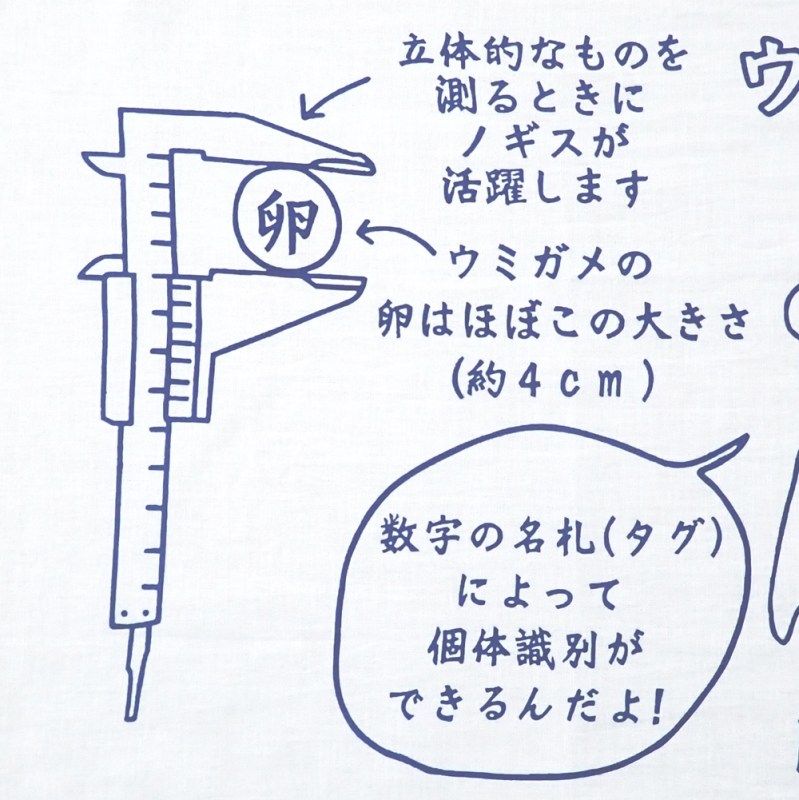 立体的なものを
測るときに
ノギスが
活躍します
卵
ウミガメの
卵はほぼこの大きさ
(約4cm)
数字の名札(タグ)
によって
個体識別が
できるんだよ!
ウ